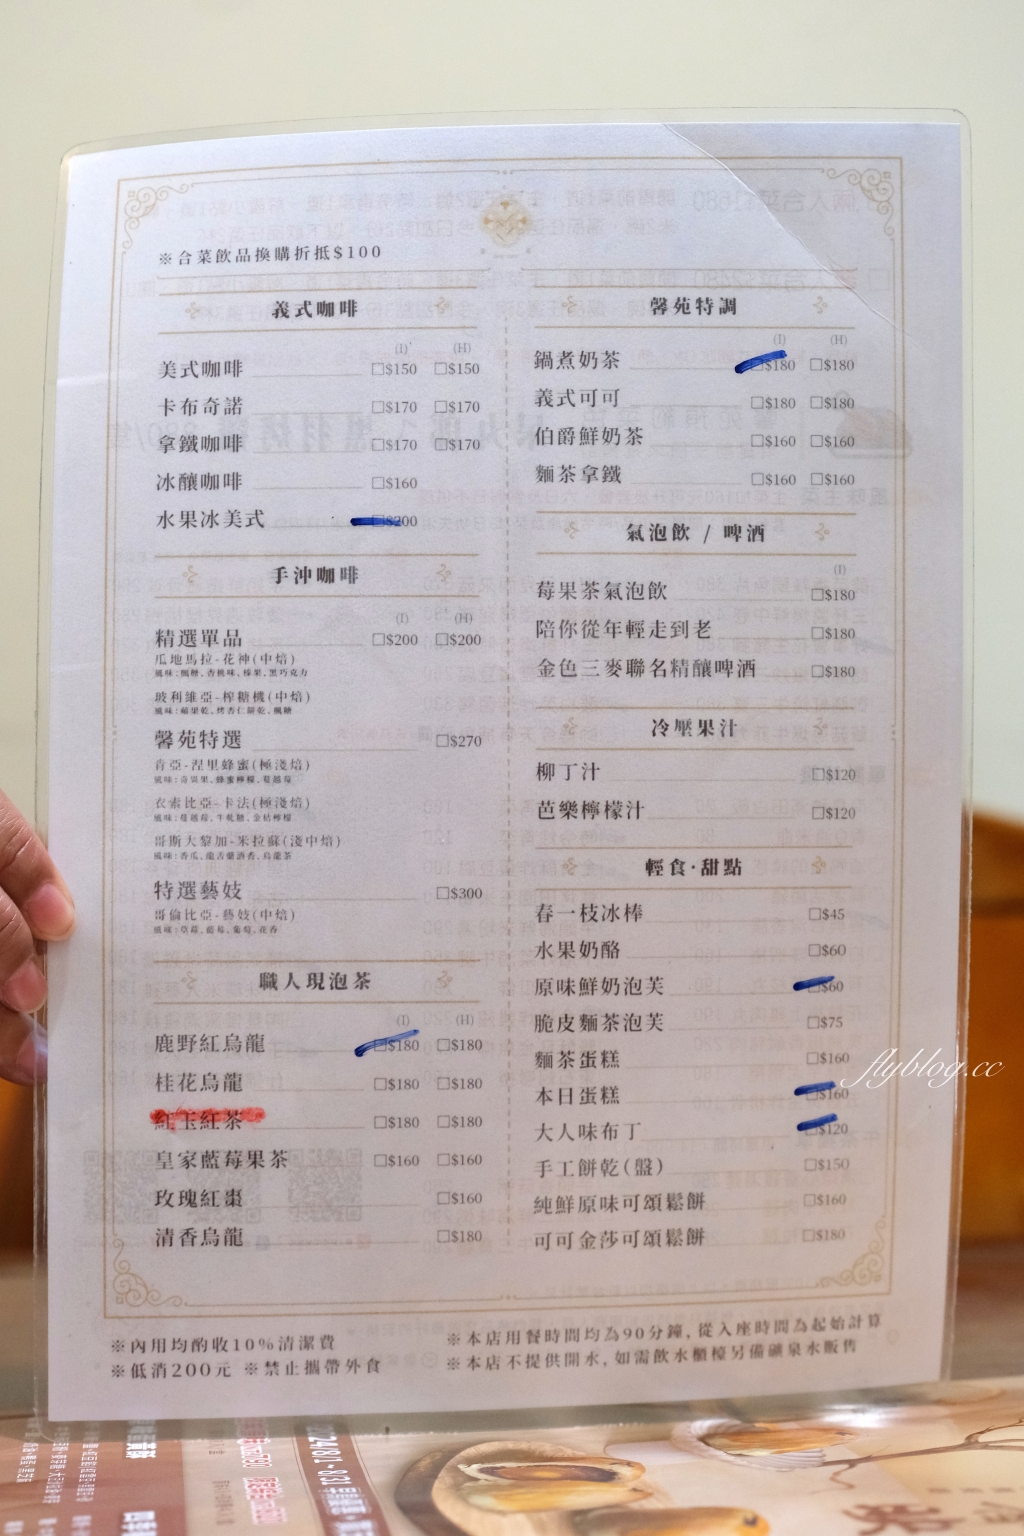 ※合菜飲品換購折抵$100
義式咖啡
(I) (H)
美式咖啡 □$150 □$150
卡布奇諾 □$170 □$170
拿鐵咖啡 □$170 □$170
冰釀咖啡 □$160
水果冰美式 □$200
手沖咖啡
(I) (H)
精選單品 □$200 □$200
瓜地馬拉-花神(中焙)
風味:楓糖、杏桃味、榛果、黑巧克力
玻利維亞-榨糖機(中焙)
風味:蘋果乾、烤杏仁餅乾、楓糖
馨苑特選 □$270
肯亞-涅里蜂蜜(極淺焙)
風味:奇異果、蜂蜜檸檬、蔓越莓
衣索比亞-卡法(極淺焙)
風味:蔓越莓、牛軋糖、金桔檸檬
哥斯大黎加-米拉蘇(淺中焙)
風味:香瓜、龍舌蘭酒香、烏龍茶
特選藝妓 □$300
哥倫比亞-藝妓(中焙)
風味:草莓、藍莓、葡萄、花香
職人現泡茶
(I) (H)
鹿野紅烏龍 □$180 □$180
桂花烏龍 □$180 □$180
紅玉紅茶 □$180 □$180
皇家藍莓果茶 □$160 □$160
玫瑰紅棗 □$160
清香烏龍 □$180
馨苑特調
(I) (H)
鍋煮奶茶 □$180 □$180
義式可可 □$180 □$180
伯爵鮮奶茶 □$160 □$160
麵茶拿鐵 □$160 □$160
氣泡飲 / 啤酒
(I)
莓果茶氣泡飲 □$180
陪你從年輕走到老 □$180
金色三麥聯名精釀啤酒 □$180
冷壓果汁
柳丁汁 □$120
芭樂檸檬汁 □$120
輕食·甜點
春一枝冰棒 □$45
水果奶酪 □$60
原味鮮奶泡芙 □$60
脆皮麵茶泡芙 □$75
麵茶蛋糕 □$160
本日蛋糕 □$160
大人味布丁 □$120
手工餅乾(盤) □$150
純鮮原味可頌鬆餅 □$160
可可金莎可頌鬆餅 □$180
※內用均酌收10%清潔費
※低消200元 ※禁止攜帶外食
※本店用餐時間均為90分鐘,從入座時間為起始計算
※本店不提供開水,如需飲水櫃檯另備礦泉水販售
flyblog.cc